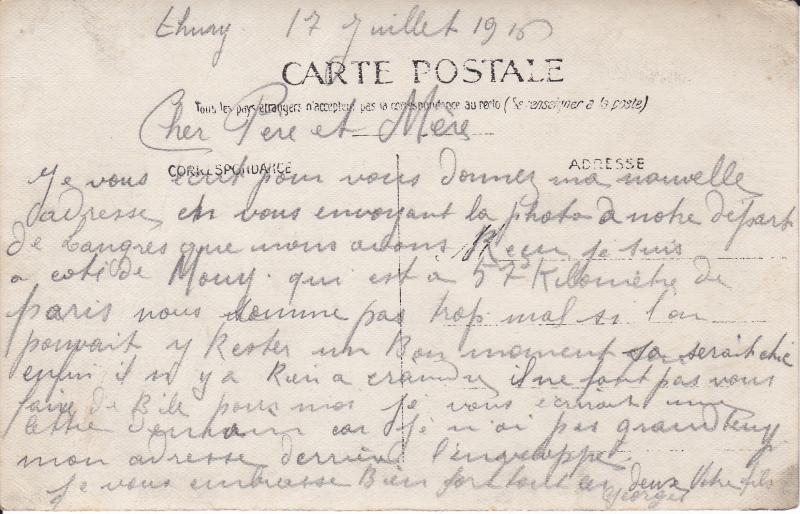 thury 17 Juillet 1916
CARTE POSTALE
Tous les pays étrangers n'acceptent pas la correspondance au recto (Se renseigner à la poste)
Cher Père et Mère
CORRESPONDANCE
ADRESSE
Je vous ecrit pour vous donnez ma nouvelle
dadresse en vous envoyant la photo a notre départ
de Langres que nous avons Reçu je suis
a coté de Mouy. qui est a 57 Kilomètre de
paris nous somme pas trop mal si l'on
pouvait y Rester un Bon moment sa serait chic
enfin il n y a Rien a craindre il ne faut pas vous
faire de Bile pour moi je vous écrirait une
lettre demain car je n'ai pas grand temp
mon adresse derrière l'enveloppe.
je vous embrasse Bien fort tout les deux Votre fils
Georges